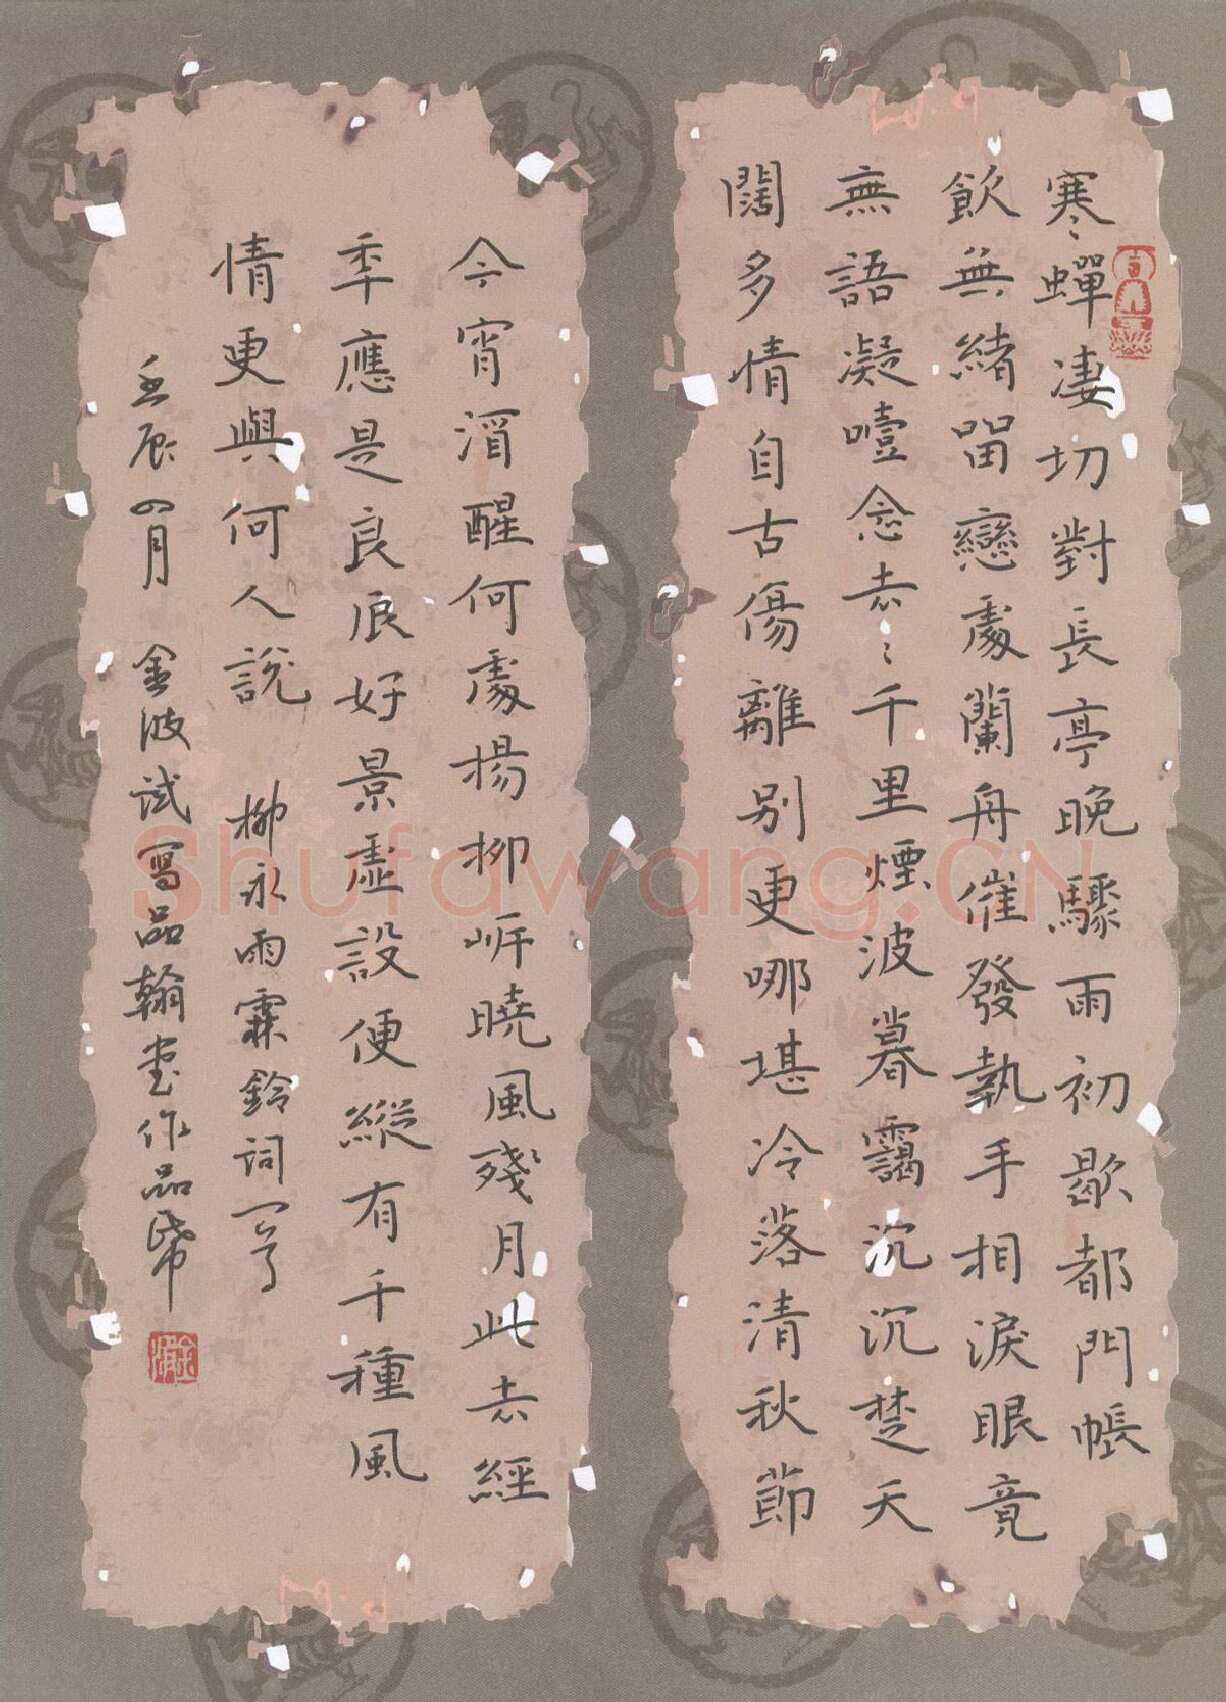 寒蟬凄切對長亭晚驟雨初歇都門帳
飲無緒留戀處蘭舟催發執手相淚眼竟
無語凝噎念去〻千里煙波暮靄沉沉楚天
闊多情自古傷離別更哪堪冷落清秋節
今宵酒醒何處楊柳岸曉風殘月此去經
年應是良辰好景虛設便縱有千種風
情更與何人說 柳永雨霖鈴詞一首
壬辰四月 金波試寫品翰堂作品帋
Shufawang.CN